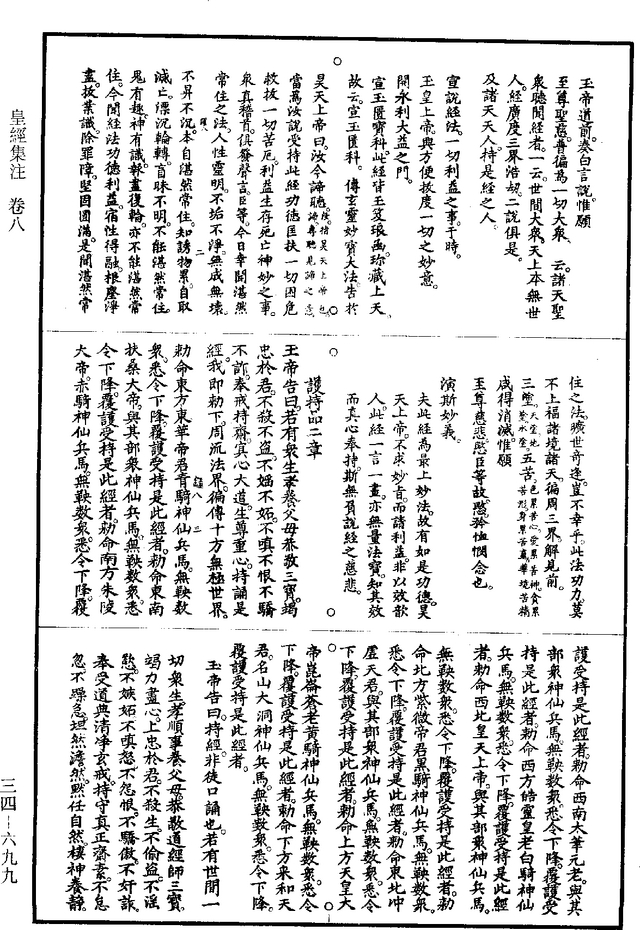 皇經集注 卷八
三四—六九九
玉帝道前奏白言說惟願
至尊聖慈普徧為一切大衆 云諸天聖
衆聽聞經者一云世間大衆天上本無世
人經廣度三界浩劫二說俱是
及諸天天人持是經之人
宣說經法一切利益之事于時
玉皇上帝興方便救度一切之妙意
開永利大益之門
宣玉匱寶科此經皆玉笈琅函珍藏上天
故云宣玉匱科傳玄靈妙寶大法告於
昊天上帝曰汝今諦聽
當為汝說受持此經功德匡扶一切困危
救拔一切苦厄利益生存死亡神妙之事
衆真稽首俱發聲言臣等今日幸聞湛然
常住之法人性靈明不垢不淨無成無壞
不昇不沉本自湛然常住知誘物累自取
滅亡漂沉輪轉盲昧不明不能湛然常住
鬼有趣神有識執晝復輪亦不能湛然常
住今聞經法功德利益宿性得融根塵淨
盡故業識除罪障堅固圓滿是聞湛然常
住之法曠世奇逢豈不幸乎此法功力莫
不上福諸境諸天徧周三界解見前
三塗五苦
咸得消滅惟願
至尊慈悲愍臣等故愍矜恤憫念也
演斯妙義
夫此經為最上妙法故有如是功德昊
天上帝不求妙旨而請利益非以效歆
人此經一言一畫亦無量法寶知其效
而真心奉持斯無負說經之慈悲
護持品二章
玉帝告曰若有衆生孝養父母恭敬三寶竭
忠於君不殺不盜不婬不妬不嗔不恨不驕
不詐奉戒持齋真心大道生尊重心持誦是
經我即勅下周流法界徧傳十方無極世界
勅命東方東華帝君青騎神仙兵馬無鞅數
衆悉令下降覆護受持是此經者勅命東南
扶桑大帝與其部衆神仙兵馬無鞅數衆悉
令下降覆護受持是此經者勅命南方朱陵
大帝赤騎神仙兵馬無鞅數衆悉令下降覆
護受持是此經者勅命西南太華元老與其
部衆神仙兵馬無鞅數衆悉令下降覆護受
持是此經者勅命西方皓靈皇老白騎神仙
兵馬無鞅數衆悉令下降覆護受持是此經
者勅命西北皇天上帝與其部衆神仙兵馬
無鞅數衆悉令下降覆護受持是此經者勅
命北方紫微帝君黑騎神仙兵馬無鞅數衆
悉令下降覆護受持是此經者勅命東北冲
虛天君與其部衆神仙兵馬無鞅數衆悉令
下降覆護受持是此經者勅命上方天皇大
帝崑崙蒼老黃騎神仙兵馬無鞅數衆悉令
下降覆護受持是此經者勅命下方來和天
君名山大洞神仙兵馬無鞅數衆悉令下降
覆護受持是此經者
玉帝告曰持經非徒口誦也若有世間一
切衆生孝順事養父母恭敬道經師三寶
竭力盡心上忠於君不殺生不偷盜不淫
慾不嫉妬不嗔怒不怨恨不驕傲不奸詐
奉受道典清淨玄戒持守真正齋素不怠
忽不躁急坦然澹然默任自然棲神養靜